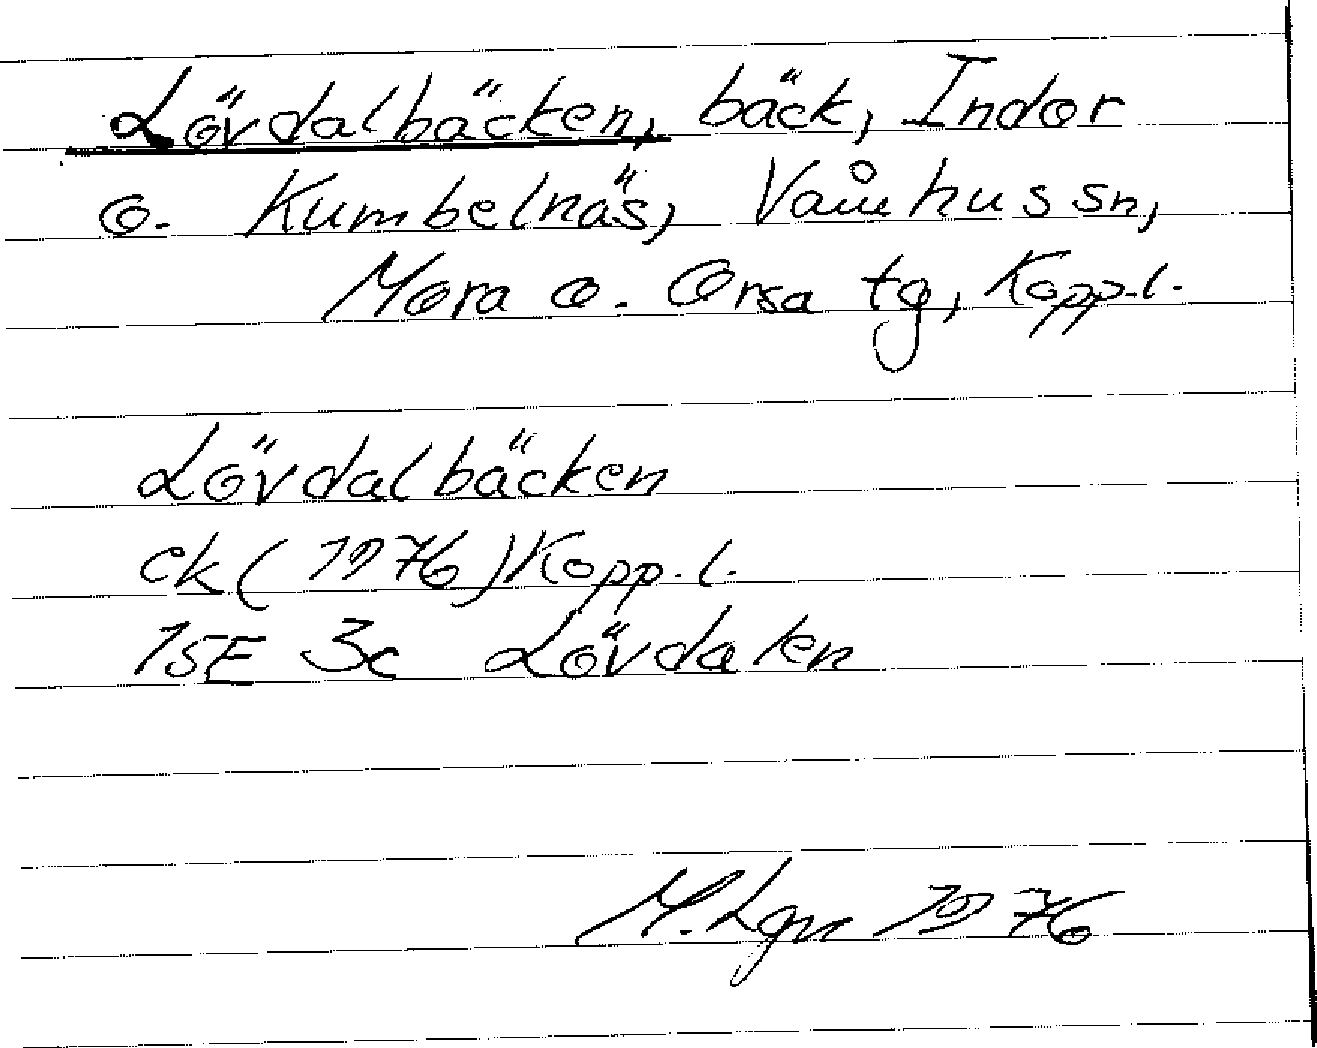 Lövdalbäcken, bäck, Indor
o. Kumbelnäs, Våmhus sn,
Mora o. Orsa tg, Kopp.l.
Lövdalbäcken
ek (1976) Kopp.l.
15E 3c Lövdalen
M. Lgn 1976